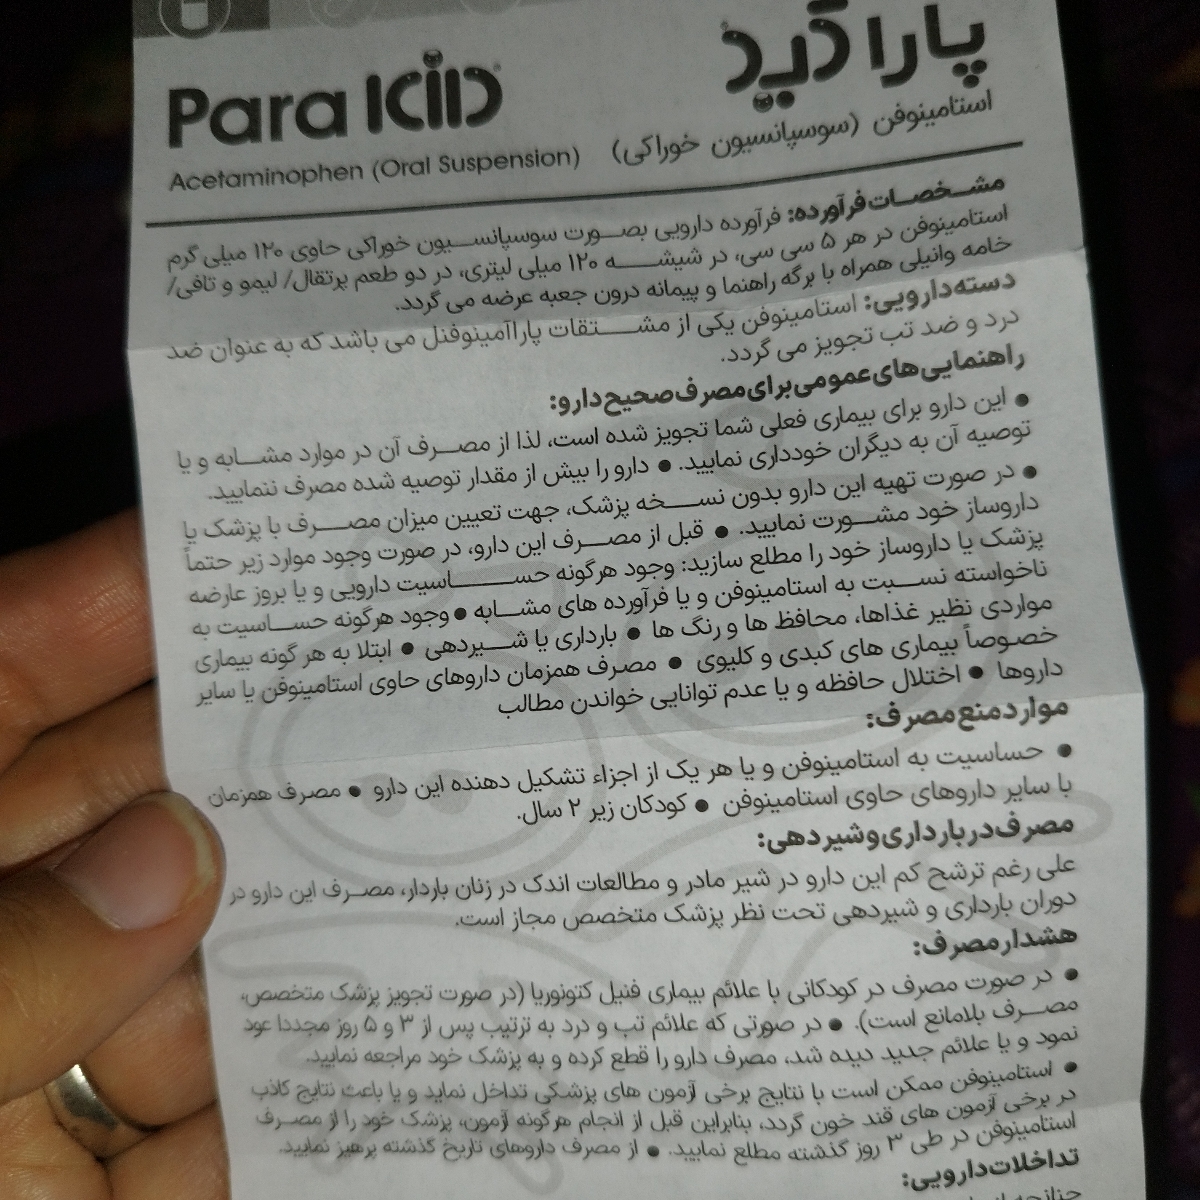 پارا کید
Para KID
استامینوفن (سوسپانسیون خوراکی)
Acetaminophen (Oral Suspension)
مشخصات فرآورده: فرآورده دارویی بصورت سوسپانسیون خوراکی حاوی ۱۲۰ میلی گرم
استامینوفن در هر ۵ سی سی، در شیشه ۱۲۰ میلی لیتری، در دو طعم پرتقال/ لیمو و تافی/
خامه وانیلی همراه با برگه راهنما و پیمانه درون جعبه عرضه می گردد.
دسته دارویی: استامینوفن یکی از مشتقات پاراآمینوفنل می باشد که به عنوان ضد
درد و ضد تب تجویز می گردد.
راهنمایی های عمومی برای مصرف صحیح دارو:
● این دارو برای بیماری فعلی شما تجویز شده است، لذا از مصرف آن در موارد مشابه و یا
توصیه آن به دیگران خودداری نمایید. ● دارو را بیش از مقدار توصیه شده مصرف ننمایید.
● در صورت تهیه این دارو بدون نسخه پزشک، جهت تعیین میزان مصرف با پزشک یا
داروساز خود مشورت نمایید. ● قبل از مصرف این دارو، در صورت وجود موارد زیر حتماً
پزشک یا داروساز خود را مطلع سازید: وجود هرگونه حساسیت دارویی و یا بروز عارضه
ناخواسته نسبت به استامینوفن و یا فرآورده های مشابه ● وجود هرگونه حساسیت به
مواردی نظیر غذاها، محافظ ها و رنگ ها ● بارداری یا شیردهی ● ابتلا به هر گونه بیماری
خصوصاً بیماری های کبدی و کلیوی ● مصرف همزمان داروهای حاوی استامینوفن یا سایر
داروها ● اختلال حافظه و یا عدم توانایی خواندن مطالب
موارد منع مصرف:
● حساسیت به استامینوفن و یا هر یک از اجزاء تشکیل دهنده این دارو ● مصرف همزمان
با سایر داروهای حاوی استامینوفن ● کودکان زیر ۲ سال.
مصرف در بارداری و شیردهی:
علی رغم ترشح کم این دارو در شیر مادر و مطالعات اندک در زنان باردار، مصرف این دارو در
دوران بارداری و شیردهی تحت نظر پزشک متخصص مجاز است.
هشدار مصرف:
● در صورت مصرف در کودکانی با علائم بیماری فنیل کتونوریا (در صورت تجویز پزشک متخصص،
مصرف بلامانع است). ● در صورتی که علائم تب و درد به ترتیب پس از ۳ و ۵ روز مجددا عود
نمود و یا علائم جدید دیده شد، مصرف دارو را قطع کرده و به پزشک خود مراجعه نمایید.
● استامینوفن ممکن است با نتایج برخی آزمون های پزشکی تداخل نماید و یا باعث نتایج کاذب
در برخی آزمون های قند خون گردد، بنابراین قبل از انجام هرگونه آزمون، پزشک خود را از مصرف
استامینوفن در طی ۳ روز گذشته مطلع نمایید. ● از مصرف داروهای تاریخ گذشته پرهیز نمایید.
تداخلات دارویی: